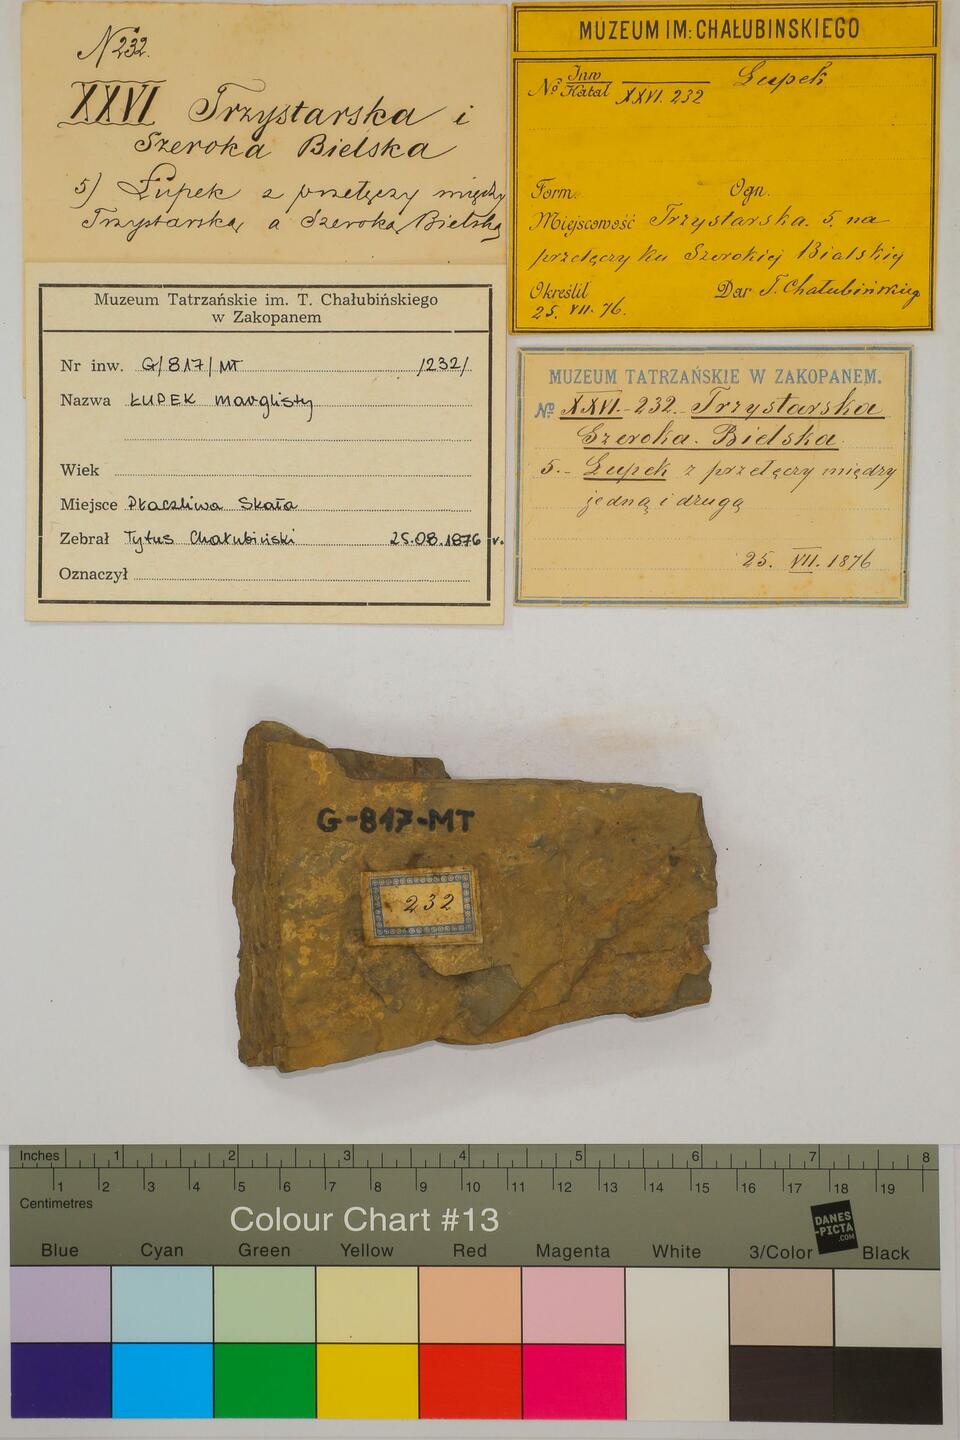 N 232.
XXVI Trzystarska i
Szeroka Bielska
5) Łupek z przełęczy między
Trzystarską a Szeroką Bielską
MUZEUM IM: CHAŁUBINSKIEGO
No Inw Katal XXVI. 232 Łupek
Form. Ogn.
Miejscowość Trzystarska. 5. na
przełęczy ku Szerokiej Bialskiej
Określił Dar T. Chałubińskiego
25. VII. 76.
Muzeum Tatrzańskie im. T. Chałubińskiego
w Zakopanem
Nr inw. G/817/MT /232/
Nazwa ŁUPEK marglisty
Wiek
Miejsce Płaczliwa Skała
Zebrał Tytus Chałubiński 25.08.1876 r.
Oznaczył
MUZEUM TATRZAŃSKIE W ZAKOPANEM.
No XXVI.-232.- Trzystarska
Szeroka. Bielska.
5.- Łupek z przełęczy między
jedną i drugą
25. VII. 1876
G-817-MT
232
Inches 1 2 3 4 5 6 7 8
1 2 3 4 5 6 7 8 9 10 11 12 13 14 15 16 17 18 19
Centimetres
Colour Chart #13
DANES
-PICTA
.COM
Blue Cyan Green Yellow Red Magenta White 3/Color Black